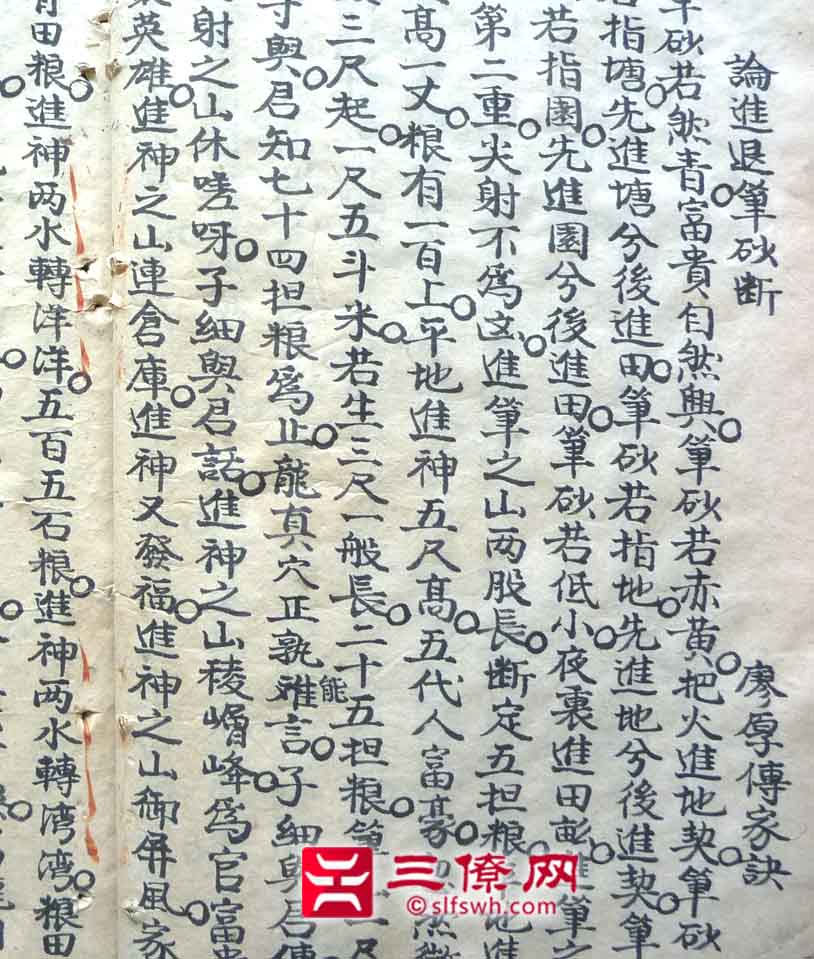 論進退筆砂断 廖厚傳家訣
筆砂若然青。富貴自然興。筆砂若赤黄。把火進地契。筆砂
若指塘。先進塘兮後進田。筆砂若指地。先進地兮後進契。筆
若指園。先進園兮後進田。筆砂若低小。夜裏進田 進筆之
第二重。尖射不爲凶。進筆之山两股長。断定五担粮。 地進
高一丈。粮有一百上。平地進神五尺高。五代人富豪。
三尺起。一尺五斗米。若生三尺一般長。二十五担粮。筆
寸與。君知七十四担粮爲止。龍真穴正孰能难言。子細與君傳
射之山休嗟呀。子細與君話。進神之山稜嶒峰。爲官富貴
英雄。進神之山連倉庫。進神又發福。進神之山御屏風。家
田粮。進神两水轉洋洋。五百五石粮。進神两水轉湾湾。粮田
三僚网
© slfswh.com